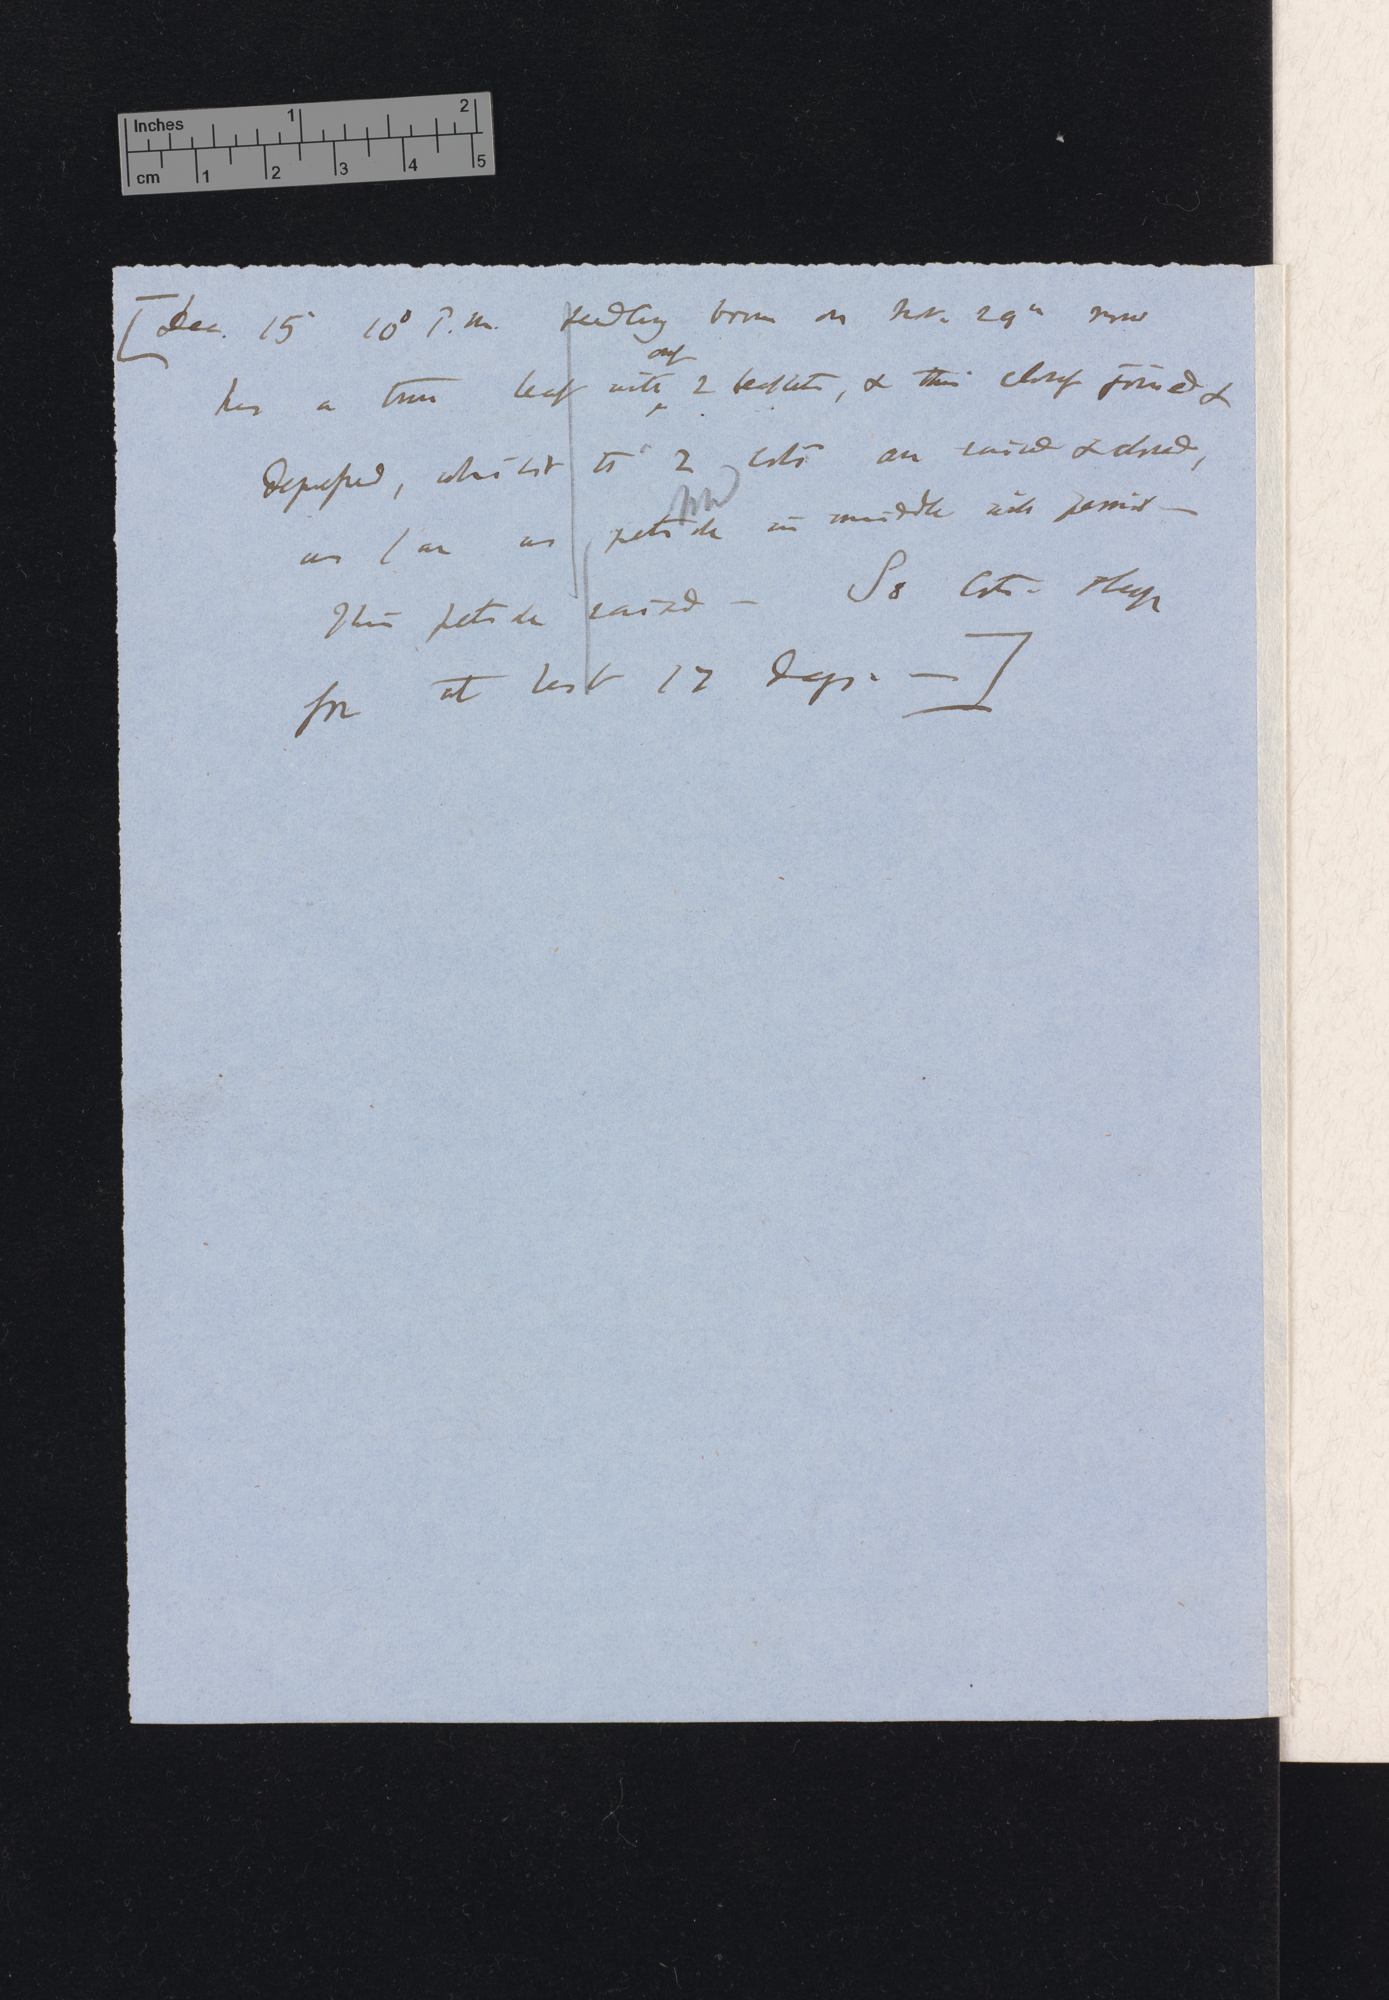 Inches 1 2
cm 1 2 3 4 5
[Dec. 15 10° P.m. seedling born on Nov. 29th now
has a true leaf with only 2 leaflets, & this closely joined &
depressed, whilst the 2 Cots are raised & closed,
as far as petiole in middle will permit —
This petiole raised — So Cots. sleep
for at least 17 days. —]